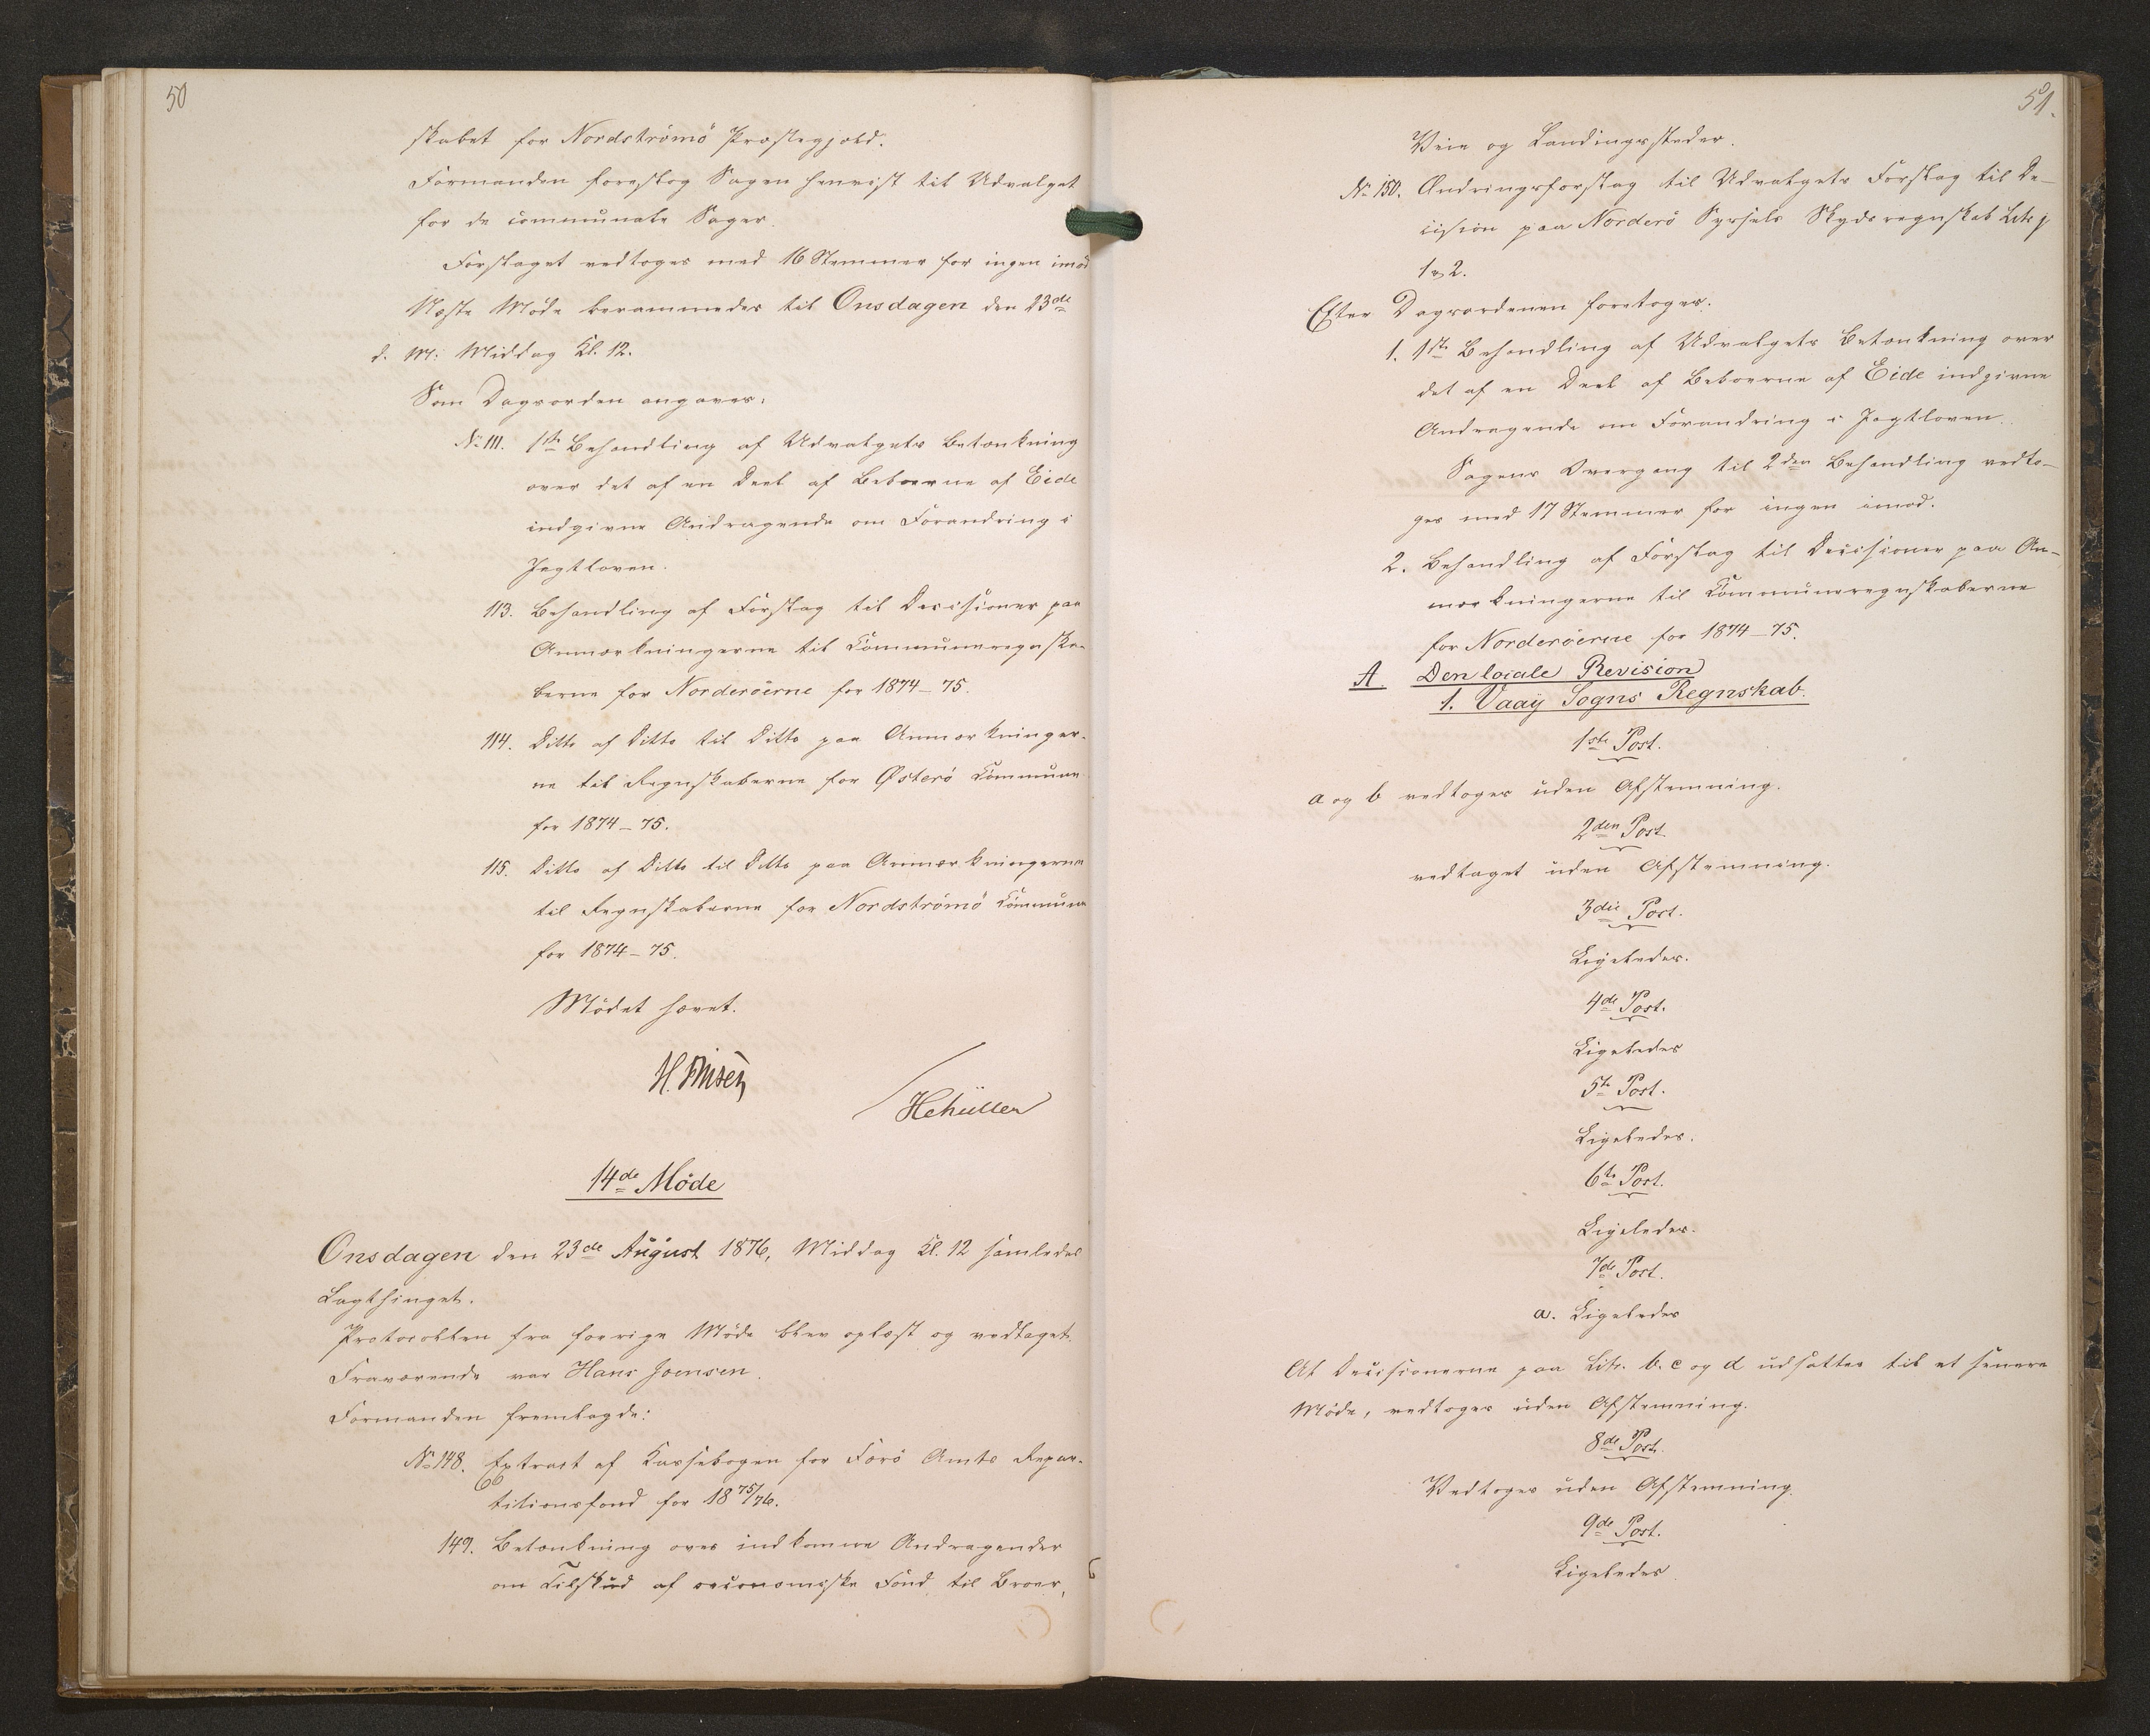 50
skabet for Nordströmö Præstegjæld.
Formanden foreslog Sagen henvist til Udvalget
for de communale Sager.
Forslaget vedtoges med 16 Stemmer for ingen imod
Næste Møde berammedes til Onsdagen den 23de
d. M. Middag Kl. 12.
Som Dagsorden angaves:
No 111. 1ste Behandling af Udvalgets Betænkning
over det af en Deel af Beboerne af Eide
indgivne Andragende om Forandring i
Jagtloven.
113. Behandling af Forslag til Decisioner paa
Anmærkningerne til Communeregnska-
berne for Norderöerne for 1874-75.
114. Ditto af Ditto til Ditto paa Anmærkninger-
ne til Regnskaberne for Østerö Commune
for 1874-75.
115. Ditto af Ditto til Ditto paa Anmærkningerne
til Regnskaberne for Nordströmö Commune
for 1874-75.
Mödet hævet.
H. Finsen
HCMüller
14de Möde
Onsdagen den 23de August 1876, Middag Kl. 12 samledes
Lagthinget.
Protocollen fra forrige Möde blev oplæst og vedtaget.
Fraværende var Hans Joensen.
Formanden fremlagde:
No 148. Extract af Kassebogen for Færö Amts Repar-
titionsfond for 1875/76.
149. Betænkning over indkomne Andragender
om Tilskud af oeconomiske Fond til Broer,
51.
Veie og Landingssteder.
No 150. Ændringsforslag til Udvalgets Forslag til De-
cision paa Norderö Syssels Skydsregnskab Litr j
1 & 2.
Efter Dagsordenen foretoges:
1. 1ste Behandling af Udvalgets Betænkning over
det af en Deel af Beboerne af Eide indgivne
Andragende om Forandring i Jagtloven.
Sagens Overgang til 2den Behandling vedto-
ges med 17 Stemmer for ingen imod.
2. Behandling af Forslag til Decisioner paa An-
mærkningerne til Communeregnskaberne
for Norderöerne for 1874-75.
A. Den locale Revision
1. Vaaÿ Sogns Regnskab.
1ste Post.
a og b vedtoges uden Afstemning.
2den Post
vedtaget uden Afstemning.
3die Post.
Ligeledes.
4de Post.
Ligeledes
5te Post.
Ligeledes.
6te Post.
Ligeledes.
7de Post.
a. Ligeledes
At Decisionerne paa Litr. b. c og d udsættes til et senere
Möde, vedtoges uden Afstemning.
8de Post.
Vedtoges uden Afstemning.
9de Post.
Ligeledes.